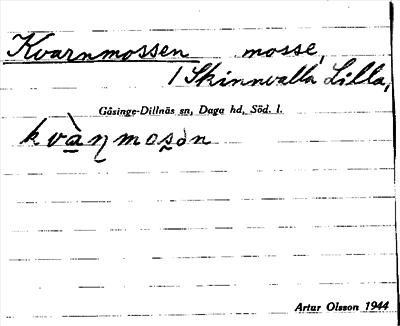 Kvarnmossen mosse,
/ Skinnvalla Lilla,
Gåsinge-Dillnäs sn, Daga hd, Söd. l.
kvàƞmosən
Artur Olsson 1944